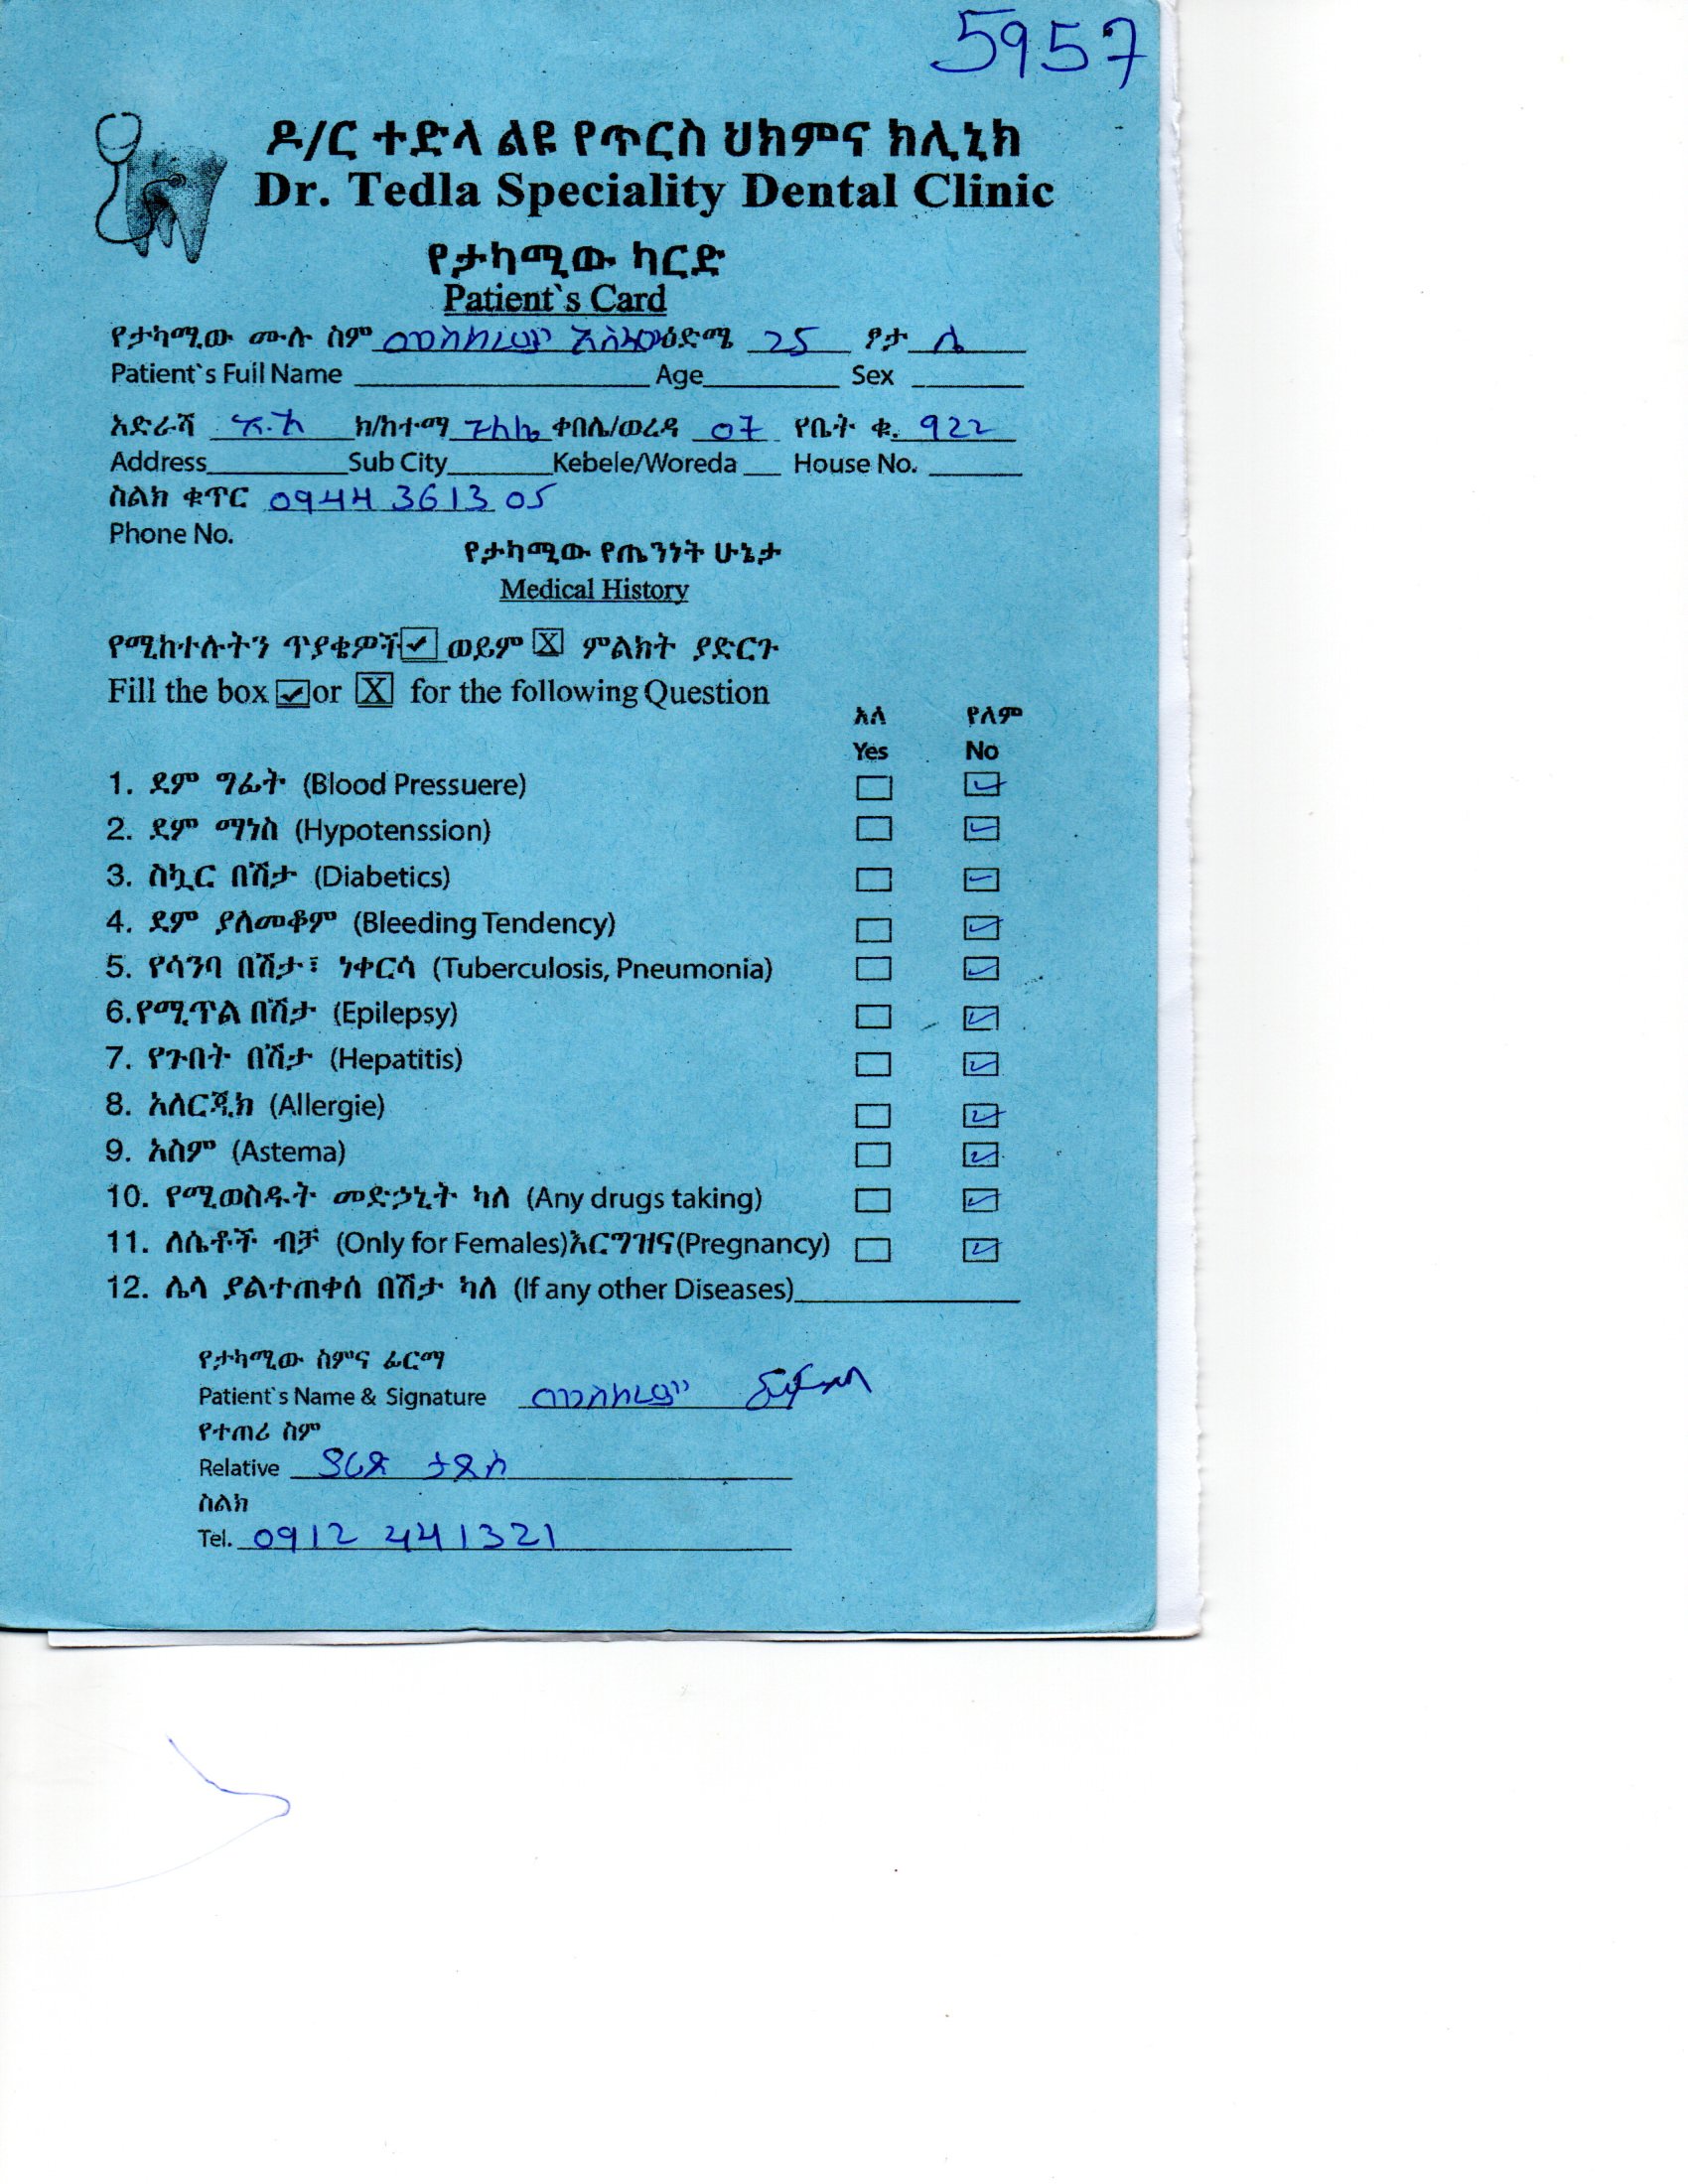 5957
ዶ/ር ተድላ ልዩ የጥርስ ህክምና ክሊኒክ
Dr. Tedla Speciality Dental Clinic
የታካሚው ካርድ
Patient`s Card
የታካሚው ሙሉ ስም መስከረም ዕድሜ 25 ፆታ ሴ
Patient`s Full Name Age Sex
አድራሻ አ.አ ክ/ከተማ ጉለሌ ቀበሌ/ወረዳ 07 የቤት ቁ. 922
Address Sub City Kebele/Woreda House No.
ስልክ ቁጥር 0944 3613 05
Phone No.
የታካሚው የጤንነት ሁኔታ
Medical History
የሚከተሉትን ጥያቄዎች ✓ ወይም X ምልክት ያድርጉ
Fill the box ✓ or X for the following Question
አለ የለም
Yes No
1. ደም ግፊት (Blood Pressuere) ✓
2. ደም ማነስ (Hypotenssion) ✓
3. ስኳር በሽታ (Diabetics) ✓
4. ደም ያለመቆም (Bleeding Tendency) ✓
5. የሳንባ በሽታ፣ ነቀርሳ (Tuberculosis, Pneumonia) ✓
6.የሚጥል በሽታ (Epilepsy) ✓
7. የጉበት በሽታ (Hepatitis) ✓
8. አለርጂክ (Allergie) ✓
9. አስም (Astema) ✓
10. የሚወስዱት መድኃኒት ካለ (Any drugs taking) ✓
11. ለሴቶች ብቻ (Only for Females)እርግዝና(Pregnancy) ✓
12. ሌላ ያልተጠቀሰ በሽታ ካለ (If any other Diseases)
የታካሚው ስምና ፊርማ
Patient`s Name & Signature መስከረም
የተጠሪ ስም
Relative ያሬድ ታደሰ
ስልክ
Tel. 0912 441321